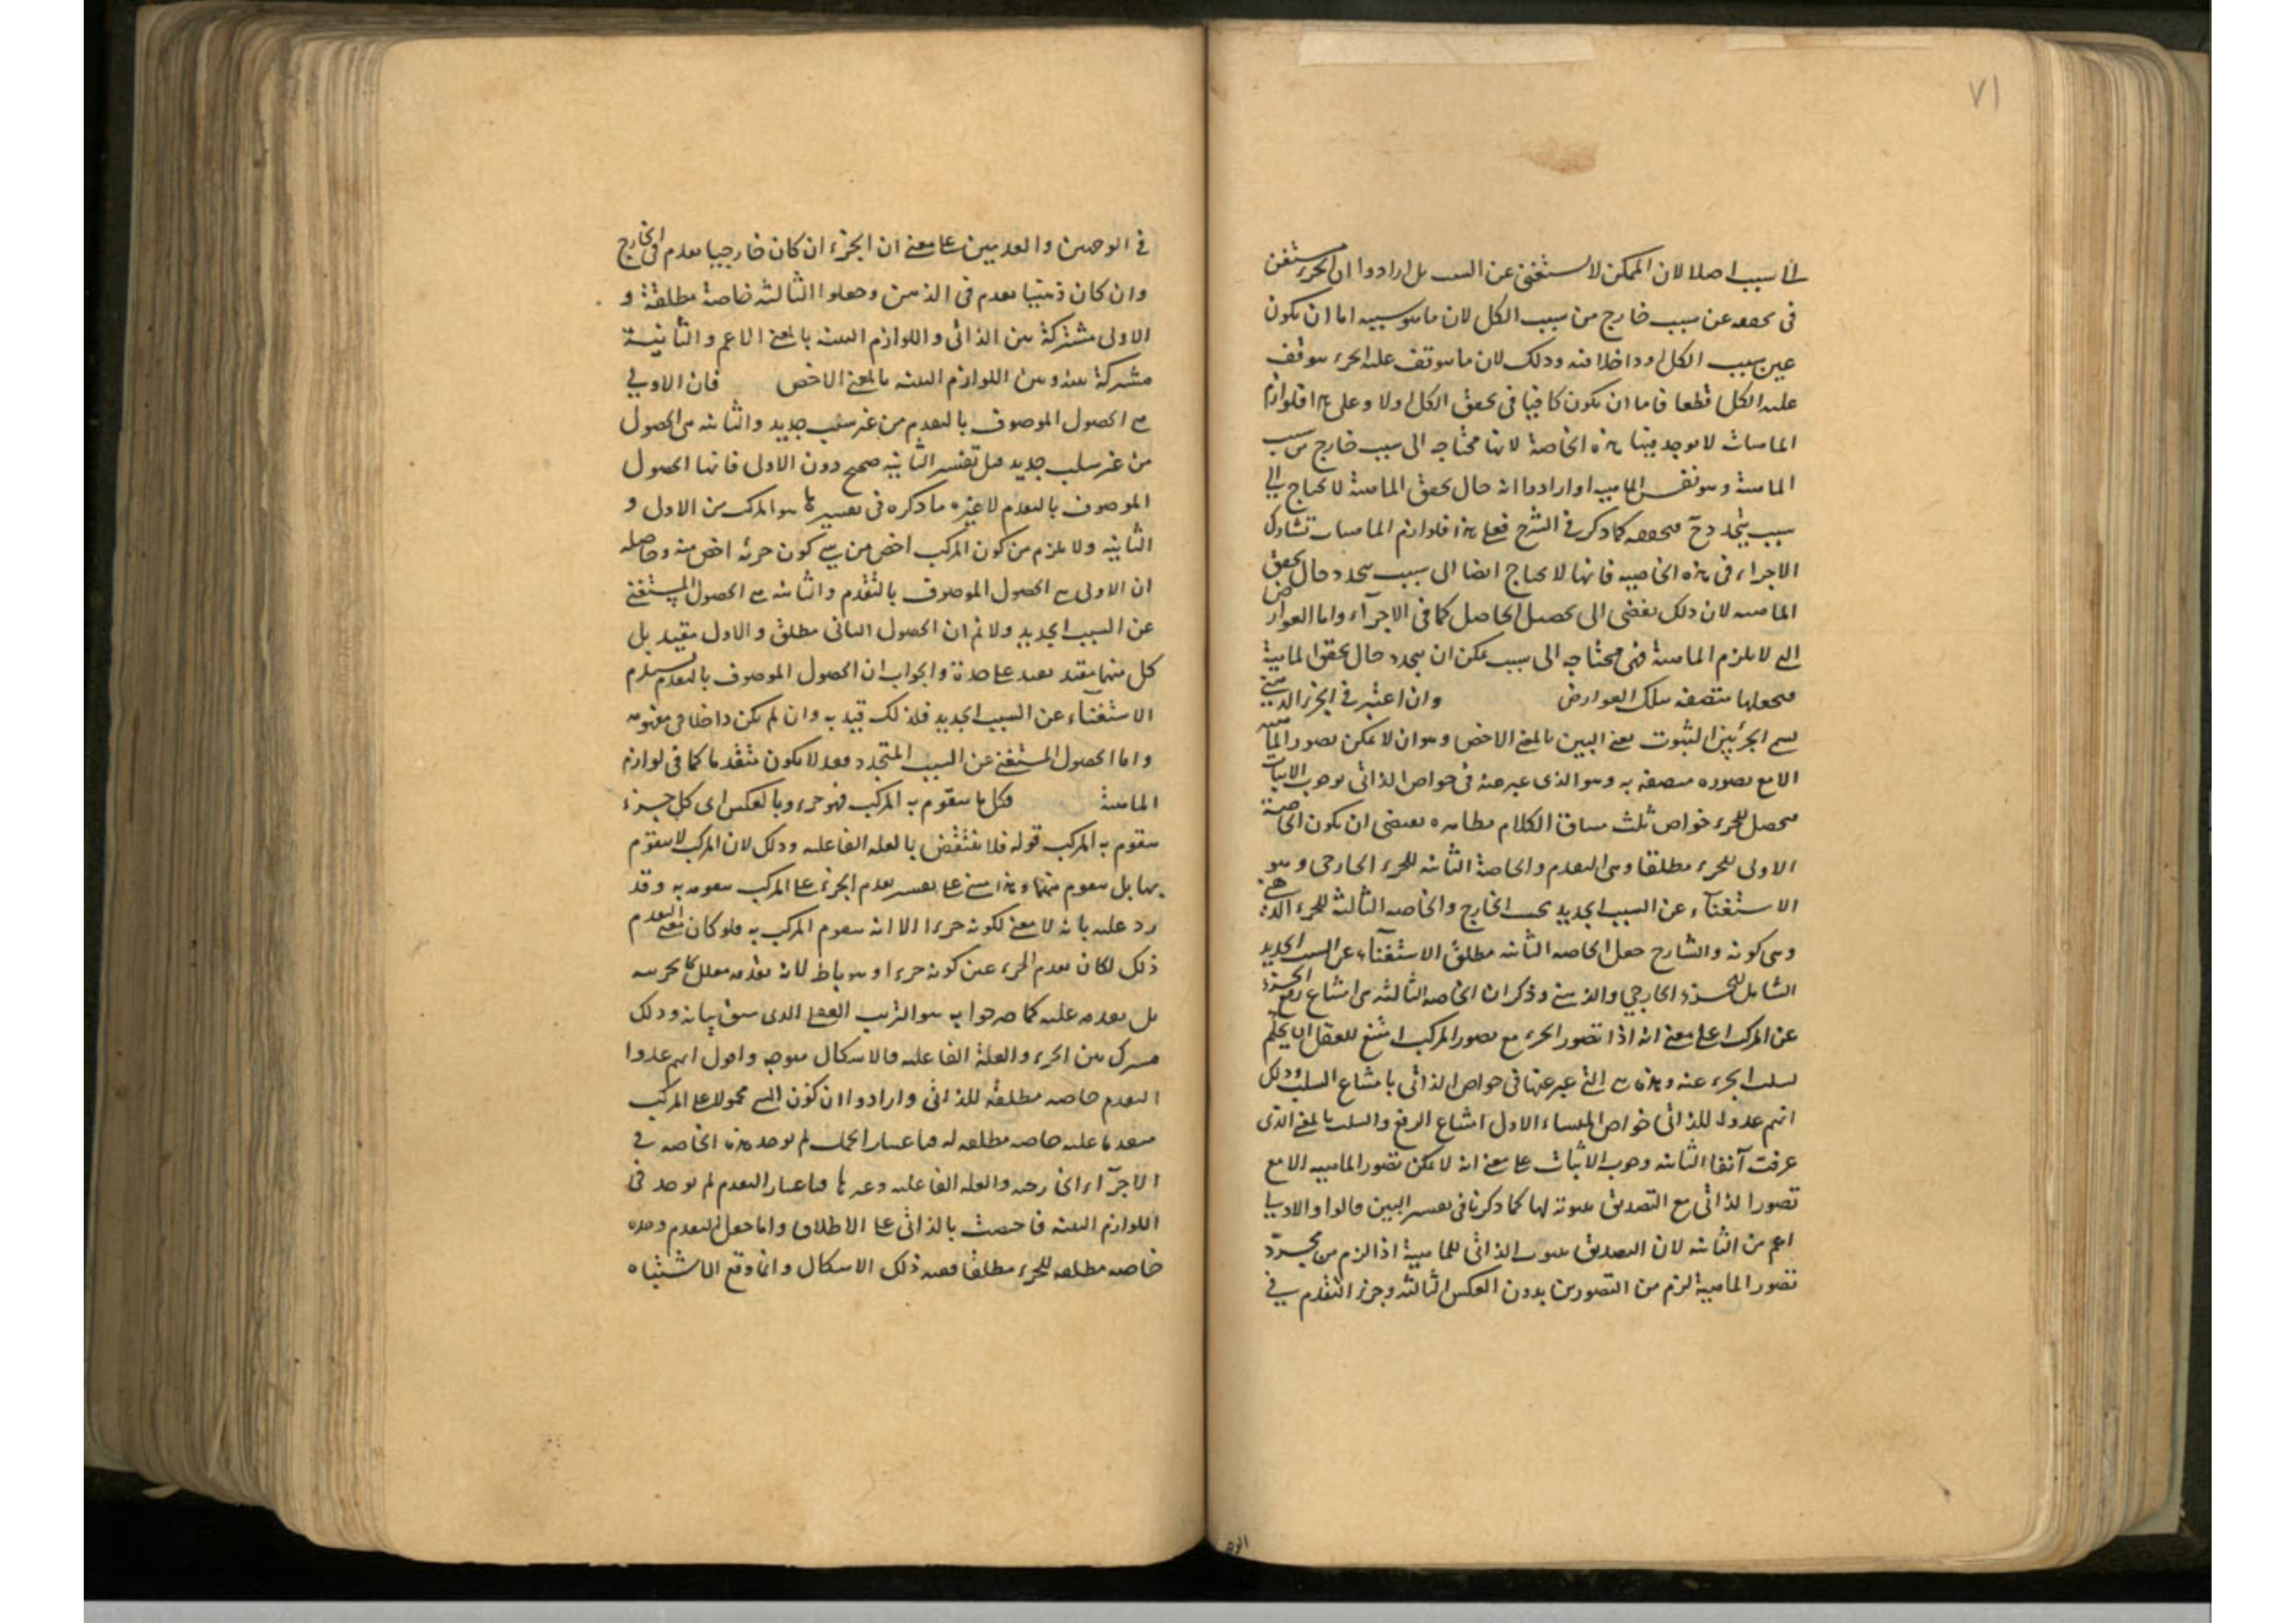 ٧١
الى سبب اصلا لان الممكن لا يستغنى عن السبب بل ارادوا ان الجزء مستغن
فى تحققه عن سبب خارج من سبب الكل لان ما هو سببه اما ان يكون
عين سبب الكل او داخلا فيه وذلك لان ما يتوقف عليه الجزء يتوقف
عليه الكل قطعا فاما ان يكون كافيا فى تحقق الكل اولا وعلى هذا فلوازم
الماهيات لا يوجد فيها هذه الخاصة لانها محتاجة الى سبب خارج من سبب
الماهية وهو نفس الماهية او ارادوا انه حال تحقق الماهية لا يحتاج الى
سبب يتجدد ح فيحققه كما ذكر فى الشرح فعلى هذا فلوازم الماهيات تشارك
الاجزاء فى هذه الخاصية فانها لا يحتاج ايضا الى سبب يتجدد حال تحقق
الماهية لان ذلك يفضى الى تحصيل الحاصل كما فى الاجزاء واما العوارض
التى لا يلزم الماهية فهى محتاجة الى سبب يمكن ان يتجدد حال تحقق الماهية
فيجعلها متصفة بتلك العوارض وان اعتبر فى الجزء الذهنى
يسمى الجزء بين الثبوت يعنى البين بالمعنى الاخص وهو ان لا يمكن تصور الماهية
الا مع تصوره متصفة به وهو الذى عبر عنه فى خواص الذاتى بوجوب الاثبات
فيحصل للجزء خواص ثلث سياق الكلام بظاهره يقتضى ان يكون الخاصة
الاولى للجزء مطلقا وهى التقدم والخاصة الثانية للجزء الخارجى وهو
الاستغناء عن السبب الجديد بحسب الخارج والخاصة الثالثة للجزء الذهنى
وهى كونه والشارح جعل الخاصة الثانية مطلق الاستغناء عن السبب الجديد
الشامل للجزء الخارجى والذهنى وذكر ان الخاصة الثالثة هى امتناع رفع الجزء
عن المركب على معنى انه اذا تصور الجزء مع تصور المركب امتنع للعقل ان يحكم
بسلب الجزء عنه وهذه هى التى عبر عنها فى خواص الذاتى بامتناع السلب وذلك
انهم عدوا للذاتى خواص الاول امتناع الرفع والسلب بالمعنى الذى
عرفت آنفا الثانية وجوب الاثبات على معنى انه لا يمكن تصور الماهية الا مع
تصور الذاتى مع التصديق بثبوته لها كما ذكرنا فى تفسير البين قالوا والاولى
اعم من الثانية لان التصديق بثبوت الذاتى للماهية اذا لزم من مجرد
تصور الماهية لزم من التصورين بدون العكس الثالثة وجزء التقدم فى
فى الوجودين والعدمين على معنى ان الجزء ان كان خارجيا تقدم فى الخارج
وان كان ذهنيا تقدم فى الذهن وجعلوا الثالثة خاصة مطلقة و
الاولى مشتركة بين الذاتى واللوازم البينة بالمعنى الاعم والثانية
مشتركة بينه وبين اللوازم البينة بالمعنى الاخص فان الاولى
هى الحصول الموصوف بالتقدم من غير سبب جديد والثانية هى الحصول
من غير سلب جديد قيل تفسير الثانية صحيح دون الاولى فانها الحصول
الموصوف بالتقدم لا غيره ما ذكره فى تفسيرها هو المركب من الاولى و
الثانية ولا يلزم من كون المركب اخص من شى كون جزئه اخص منه وحاصله
ان الاولى هى الحصول الموصوف بالتقدم والثانية هى الحصول المستغنى
عن السبب الجديد ولا نم ان الحصول الثانى مطلق والاول مقيد بل
كل منهما مقيد بقيد على حدة والجواب ان الحصول الموصوف بالتقدم يستلزم
الاستغناء عن السبب الجديد فلذلك قيد به وان لم يكن داخلا فى مفهومه
واما الحصول المستغنى عن السبب المتجدد فقد لا يكون متقدما كما فى لوازم
الماهية فكل ما يتقوم به المركب فهو جزء وبالعكس اى كل جزء
يتقوم به المركب قوله فلا ينتقض بالعلة الفاعلية وذلك لان المركب لا يتقوم
بها بل يتقوم منها وهذا مبنى على تفسير تقدم الجزء على المركب بتقومه به وقد
رد عليه بانه لا معنى لكونه جزءا الا انه يتقوم المركب به فلو كان معنى التقدم
ذلك لكان تقدم الجزء عين كونه جزءا وهو باطل لان تقدمه معلل بجزئيته
بل تقدمه عليه كما صرحوا به هو الترتيب العقلى الذى سبق بيانه وذلك
مشترك بين الجزء والعلة الفاعلية فالاشكال متوجه واقول انهم عدوا
التقدم خاصة مطلقة للذاتى وارادوا ان كون الشى محمولا على المركب
متقدما عليه خاصة مطلقة له فباعتبار الحمل لم يوجد هذه الخاصة فى
الاجزاء الخارجية والعلة الفاعلية وغيرها وباعتبار التقدم لم يوجد فى
اللوازم البينة فاختصت بالذاتى على الاطلاق واما جعل التقدم وحده
خاصة مطلقة للجزء مطلقا ففيه ذلك الاشكال وانما وقع الاشتباه